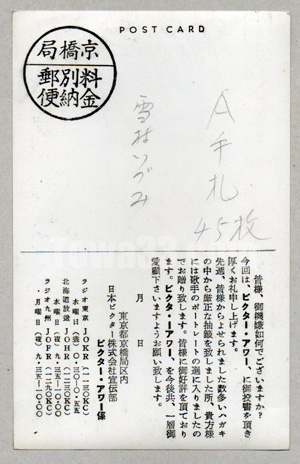 POST CARD
京橋局
料金別納郵便
A手札
45枚
雪村いづみ
皆様、御機嫌如何でございますか?
今回は、ビクター・アワー、に御投書を頂き
厚くお礼申し上げます。
先週、皆様からよせられました数多いハガキ
の中から厳正な抽籤を致しました所、貴方様
には歌手のポートレートの選に入りましたの
でお贈り致します。皆様に御好評を頂ており
ます。ビクター・アワー、を今後共、一層御
愛顧下さいますようお願い致します。
月 日
東京都京橋局区内
日本ビクター株式会社宣伝部
ビクター・アワー係
ラジオ東京 JOKR
水曜日(夜)
北海道放送 JOHR
水曜日(夜)
ラジオ九州 JOFR
月曜日(夜)